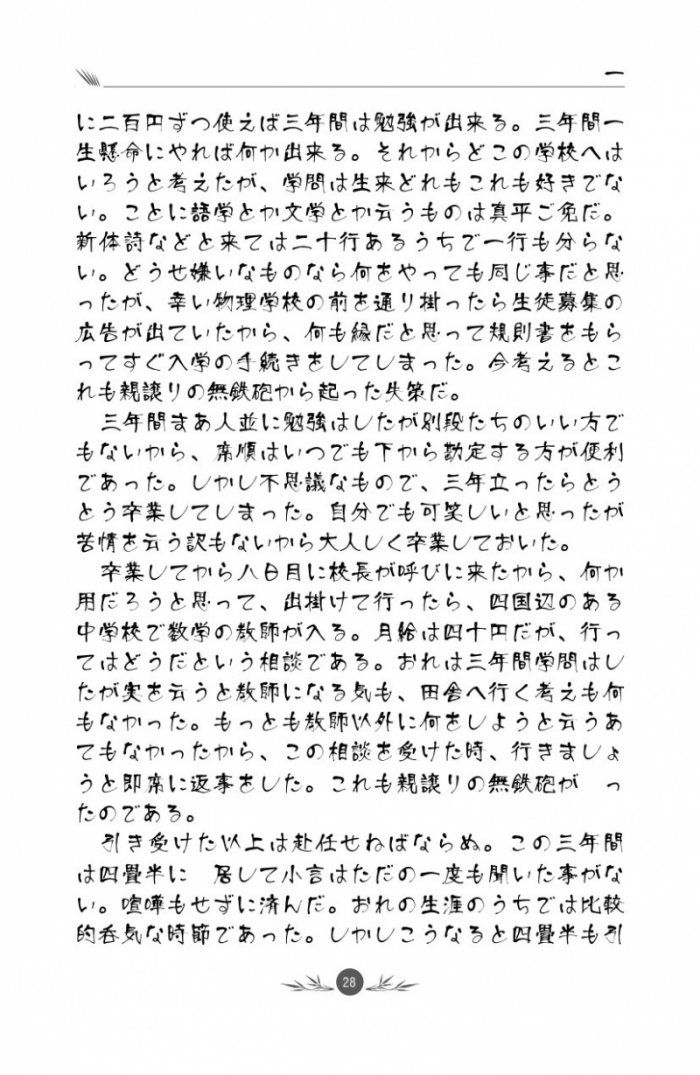 一
に二百円ずつ使えば三年間は勉強が出来る。三年間一
生懸命にやれば何か出来る。それからどこの学校へは
いろうと考えたが、学問は生来どれもこれも好きでな
い。ことに語学とか文学とか云うものは真平ご免だ。
新体詩などと来ては二十行あるうちで一行も分らな
い。どうせ嫌いなものなら何をやっても同じ事だと思
ったが、幸い物理学校の前を通り掛ったら生徒募集の
広告が出ていたから、何も縁だと思って規則書をもら
ってすぐ入学の手続きをしてしまった。今考えるとこ
れも親譲りの無鉄砲から起った失策だ。
三年間まあ人並に勉強はしたが別段たちのいい方で
もないから、席順はいつでも下から勘定する方が便利
であった。しかし不思議なもので、三年立ったらとう
とう卒業してしまった。自分でも可笑しいと思ったが
苦情を云う訳もないから大人しく卒業しておいた。
卒業してから八日目に校長が呼びに来たから、何か
用だろうと思って、出掛けて行ったら、四国辺のある
中学校で数学の教師が入る。月給は四十円だが、行っ
てはどうだという相談である。おれは三年間学問はし
たが実を云うと教師になる気も、田舎へ行く考えも何
もなかった。もっとも教師以外に何をしようと云うあ
てもなかったから、この相談を受けた時、行きましょ
うと即席に返事をした。これも親譲りの無鉄砲が　っ
たのである。
引き受けた以上は赴任せねばならぬ。この三年間
は四畳半に　居して小言はただの一度も聞いた事がな
い。喧嘩もせずに済んだ。おれの生涯のうちでは比較
的呑気な時節であった。しかしこうなると四畳半も引
28